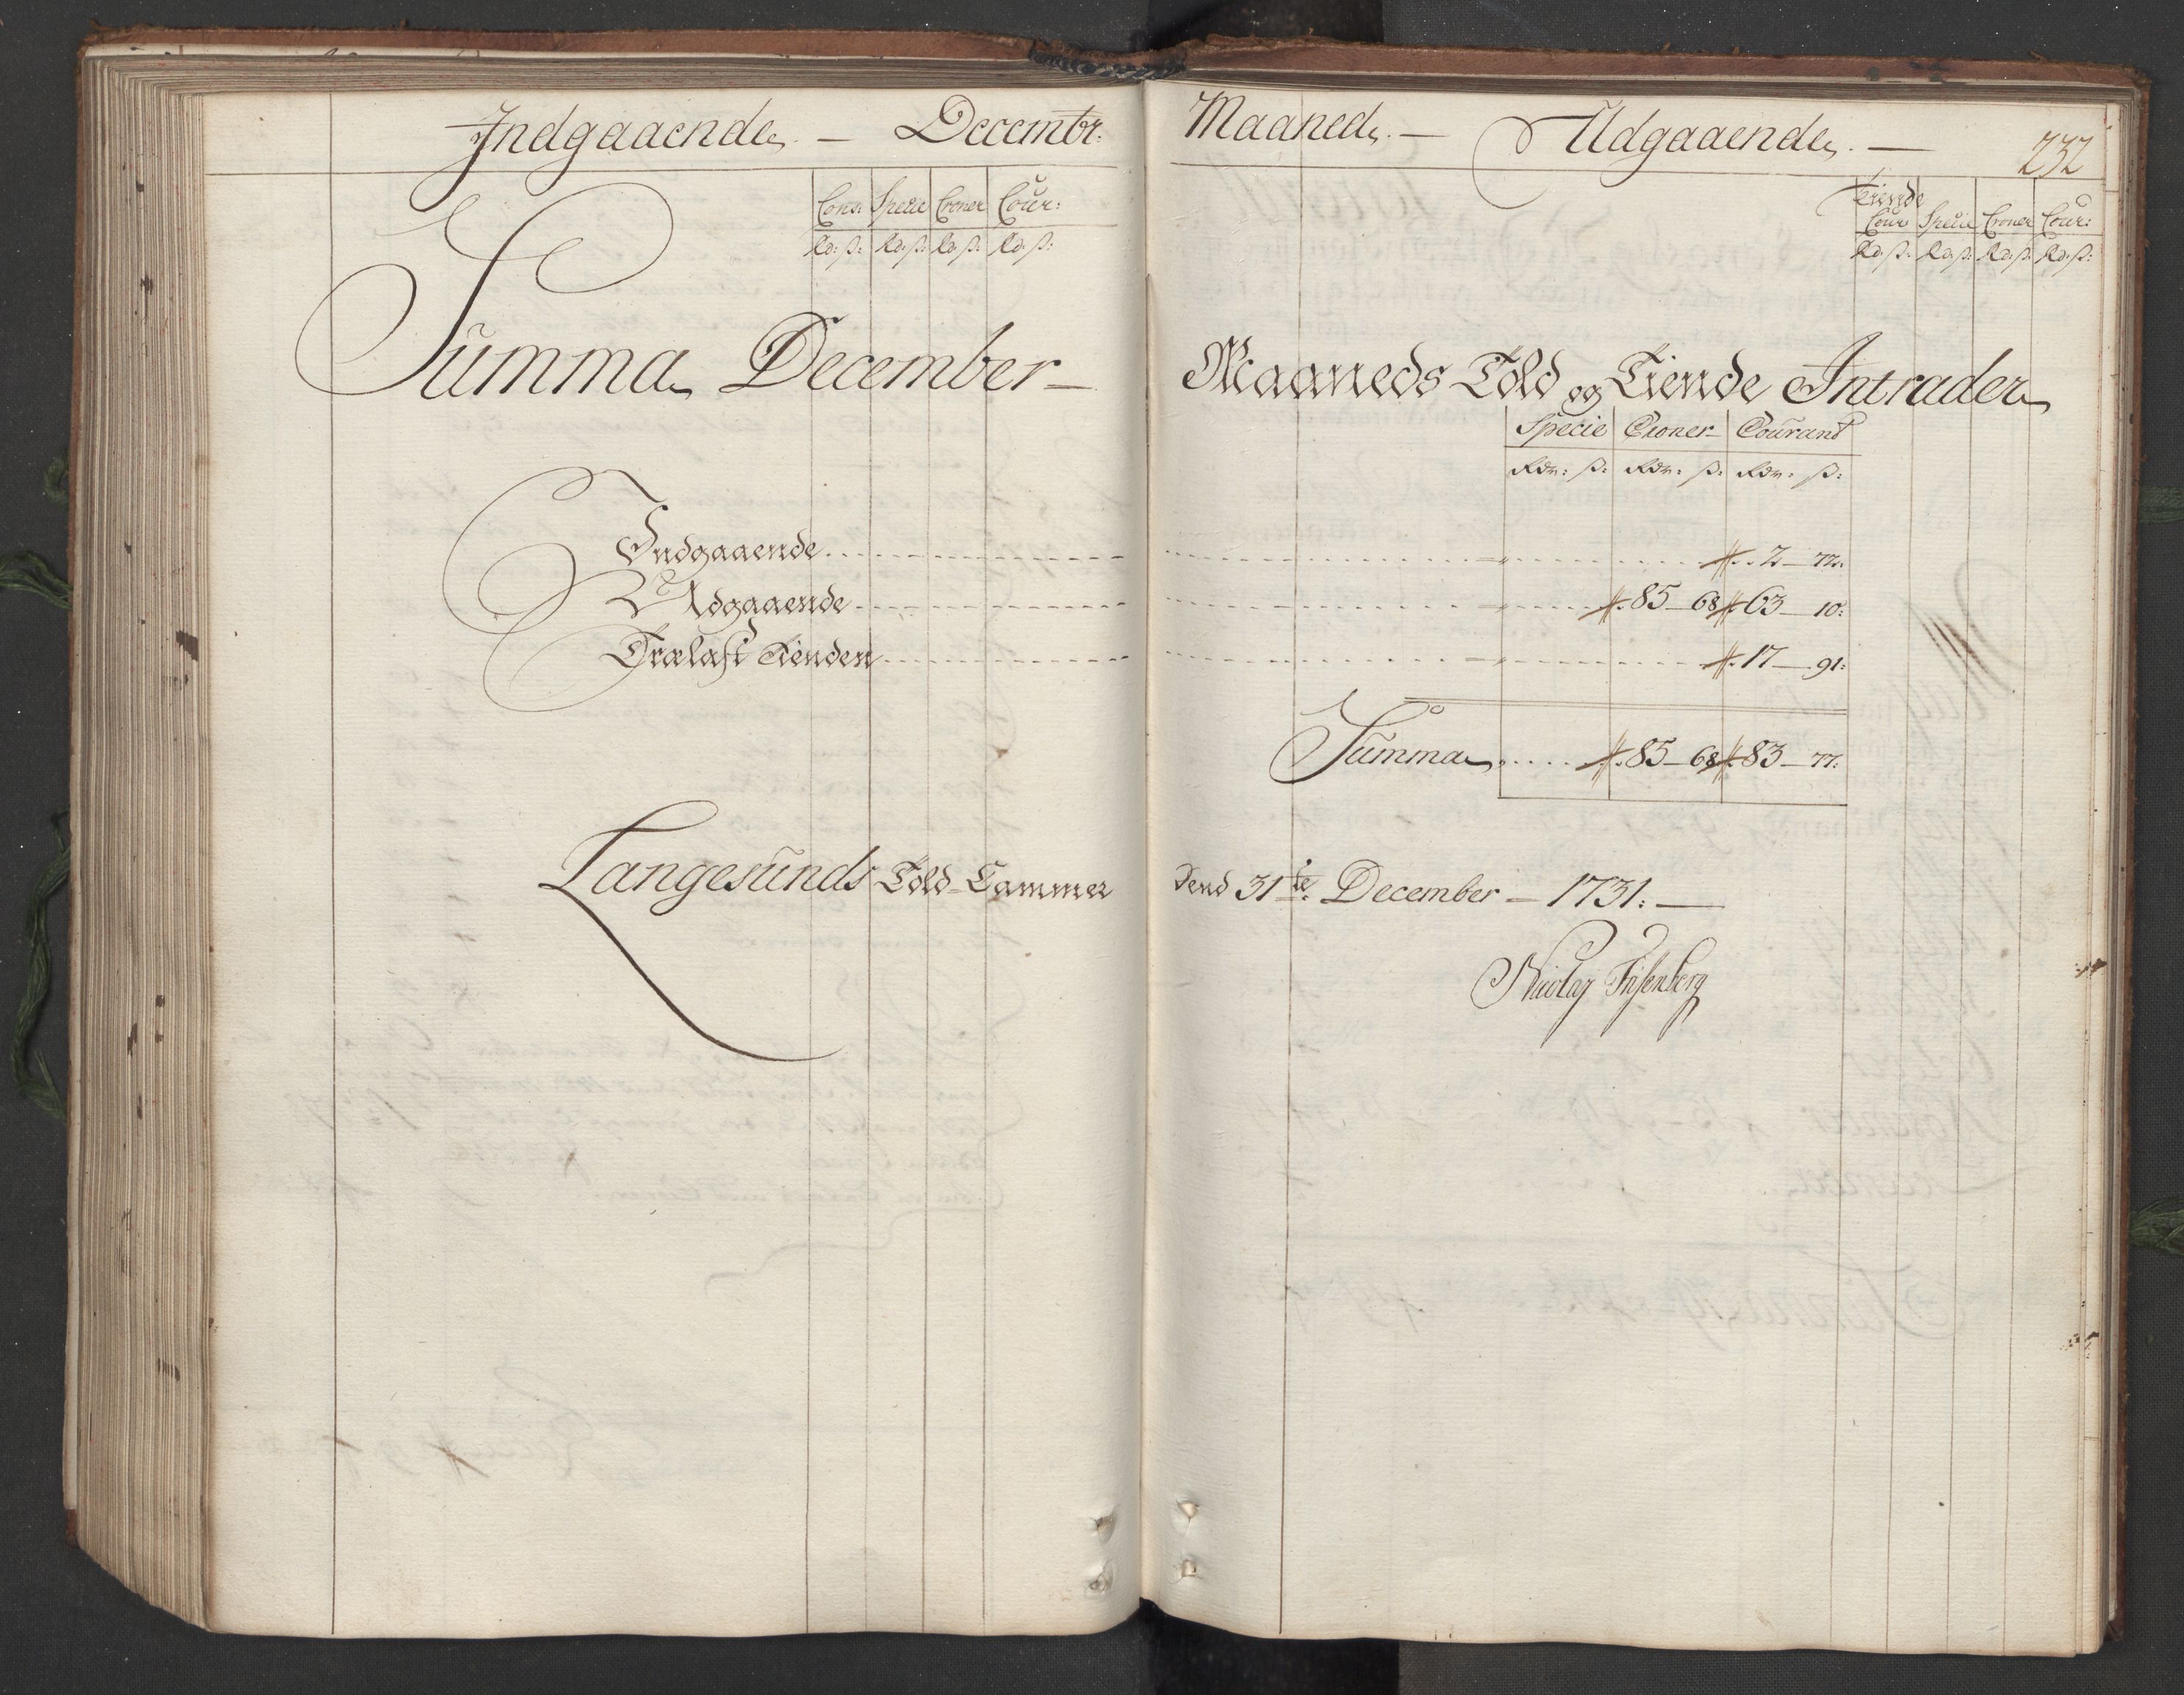 Indgaaende. — Decembr:
Cons: Specie Croner Cour:
Rd: ß: Rd. ß: Rd ß: Rd. ß:
Summa December —
Indgaaende
Udgaaende
Trælast Tienden
Langesunds Told-Cammer
Maaned. — Udgaaende. —
232
Tiende
Cour Specie Croner Cour:
Rd. ß: Rd. ß: Rd. ß: Rd. ß:
Maaneds Told og Tiende Intrader
Specie Croner Courant
Rdr: ß: Rdr: ß: Rdr: ß:
2 — 72:
85 — 68 63 — 10:
17 — 91:
Summa 85 — 68 83 — 77:
dend 31te: December — 1731: —
Nicolay